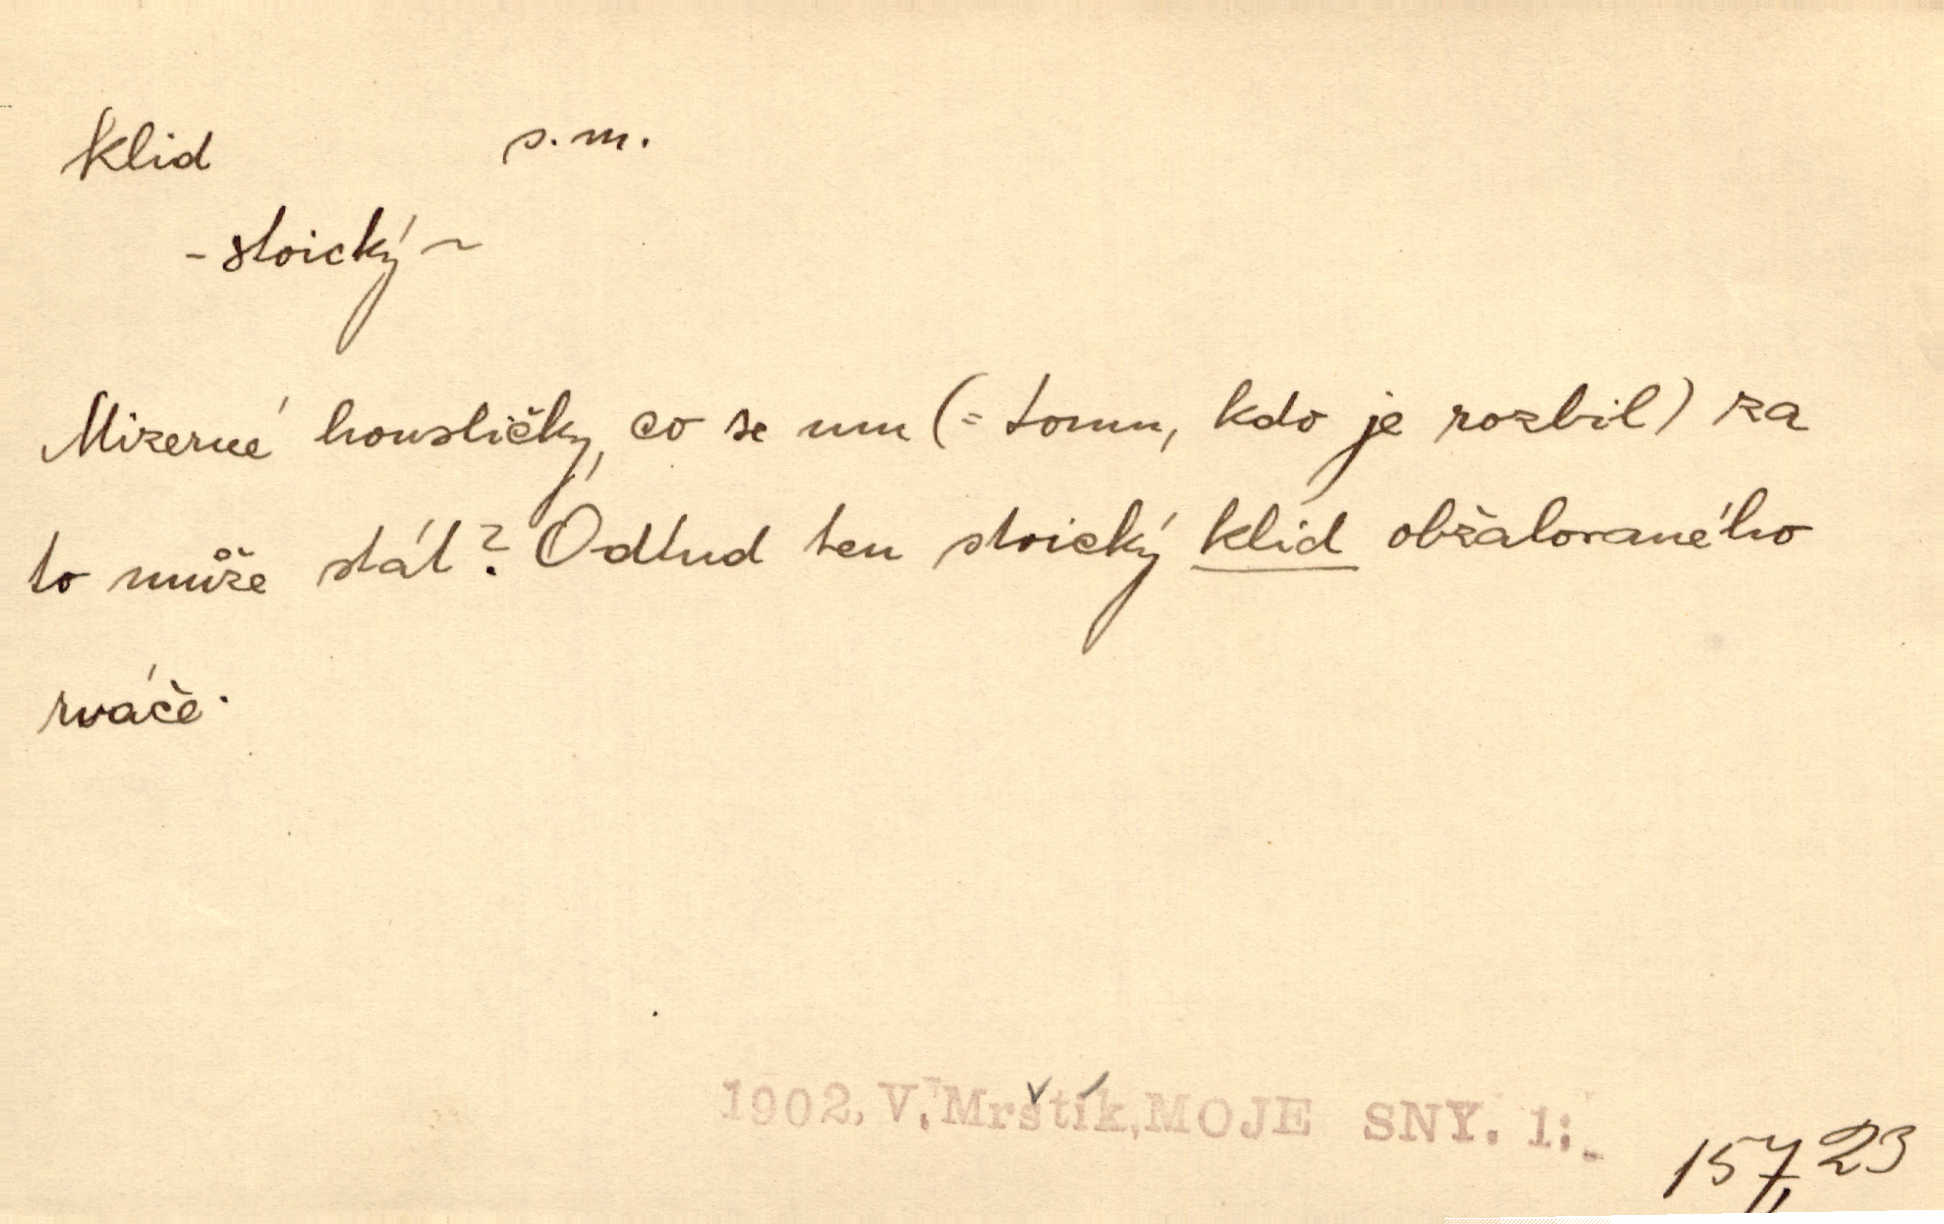 klid s. m.
- stoický ~
Mizerné housličky, co se mu (= tomu, kdo je rozbil) za
to může stát? Odtud ten stoický klid obžalovaného
rváče.
1902. V. Mrštík, MOJE SNY. 1:
157, 23